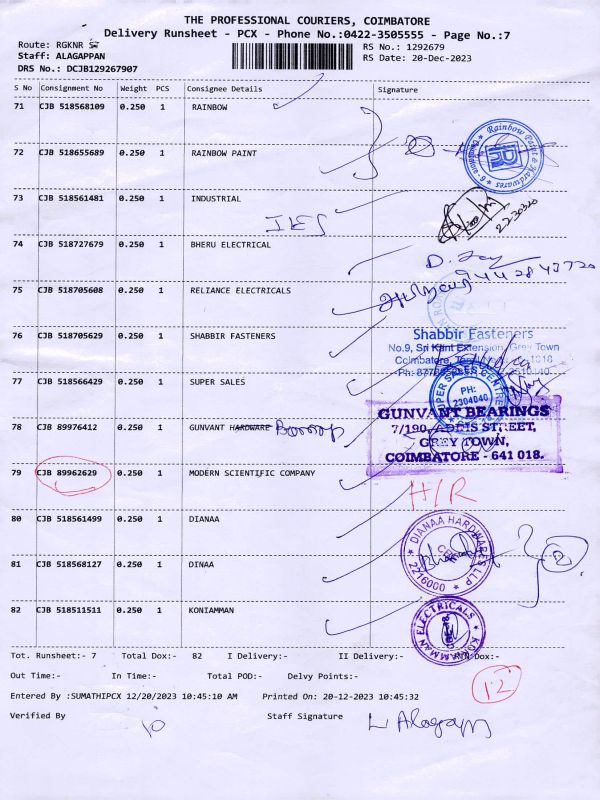 THE PROFESSIONAL COURIERS, COIMBATORE
Delivery Runsheet - PCX - Phone No.:0422-3505555 - Page No.:7
Route: RGKNR ST
RS No.: 1292679
Staff: ALAGAPPAN
RS Date: 20-Dec-2023
DRS No.: DCJB129267907
S No Consignment No Weight PCS Consignee Details Signature
71 CJB 518568109 0.250 1 RAINBOW
72 CJB 518655689 0.250 1 RAINBOW PAINT
Rainbow Paint & Hardwares
73 CJB 518561481 0.250 1 INDUSTRIAL
74 CJB 518727679 0.250 1 BHERU ELECTRICAL
75 CJB 518705608 0.250 1 RELIANCE ELECTRICALS
76 CJB 518705629 0.250 1 SHABBIR FASTENERS
Shabbir Fasteners
No.9, Sri Kant Extension, Grey Town
77 CJB 518566429 0.250 1 SUPER SALES
SUPER SALES CENTRE
PH:
2304040
78 CJB 89976412 0.250 1 GUNVANT HARDWARE
GUNVANT BEARINGS
STREET,
GREY TOWN,
COIMBATORE - 641 018.
79 CJB 89962629 0.250 1 MODERN SCIENTIFIC COMPANY
H/R
80 CJB 518561499 0.250 1 DIANAA
DIANAA HARDWARES LLP
2216000
81 CJB 518568127 0.250 1 DINAA
2
82 CJB 518511511 0.250 1 KONIAMMAN
ELECTRICALS
Tot. Runsheet:- 7 Total Dox:- 82 I Delivery:- II Delivery:- Dox:-
Out Time:- In Time:- Total POD:- Delvy Points:-
12
Entered By :SUMATHIPCX 12/20/2023 10:45:10 AM Printed On: 20-12-2023 10:45:32
Verified By Staff Signature